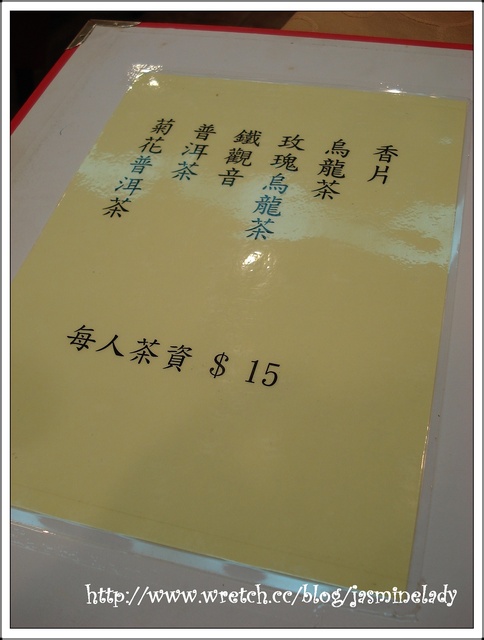 香片
烏龍茶
玫瑰烏龍茶
鐵觀音
普洱茶
菊花普洱茶
每人茶資 $ 15
http://www.wretch.cc/blog/jasminelady